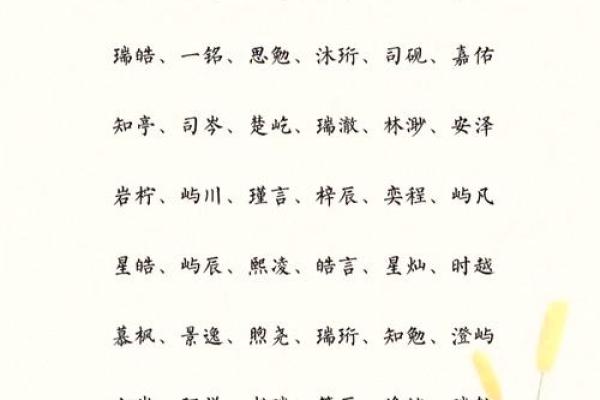 瑞皓、一铭、思勉、沐珩、司砚、嘉佑
知亭、司岑、楚屹、瑞澈、林渺、安泽
岩柠、屿川、瑾言、梓辰、奕程、屿凡
星皓、屿辰、熙凌、皓言、星灿、时越
慕枫、景逸、煦尧、瑞珩、知勉、澄屿